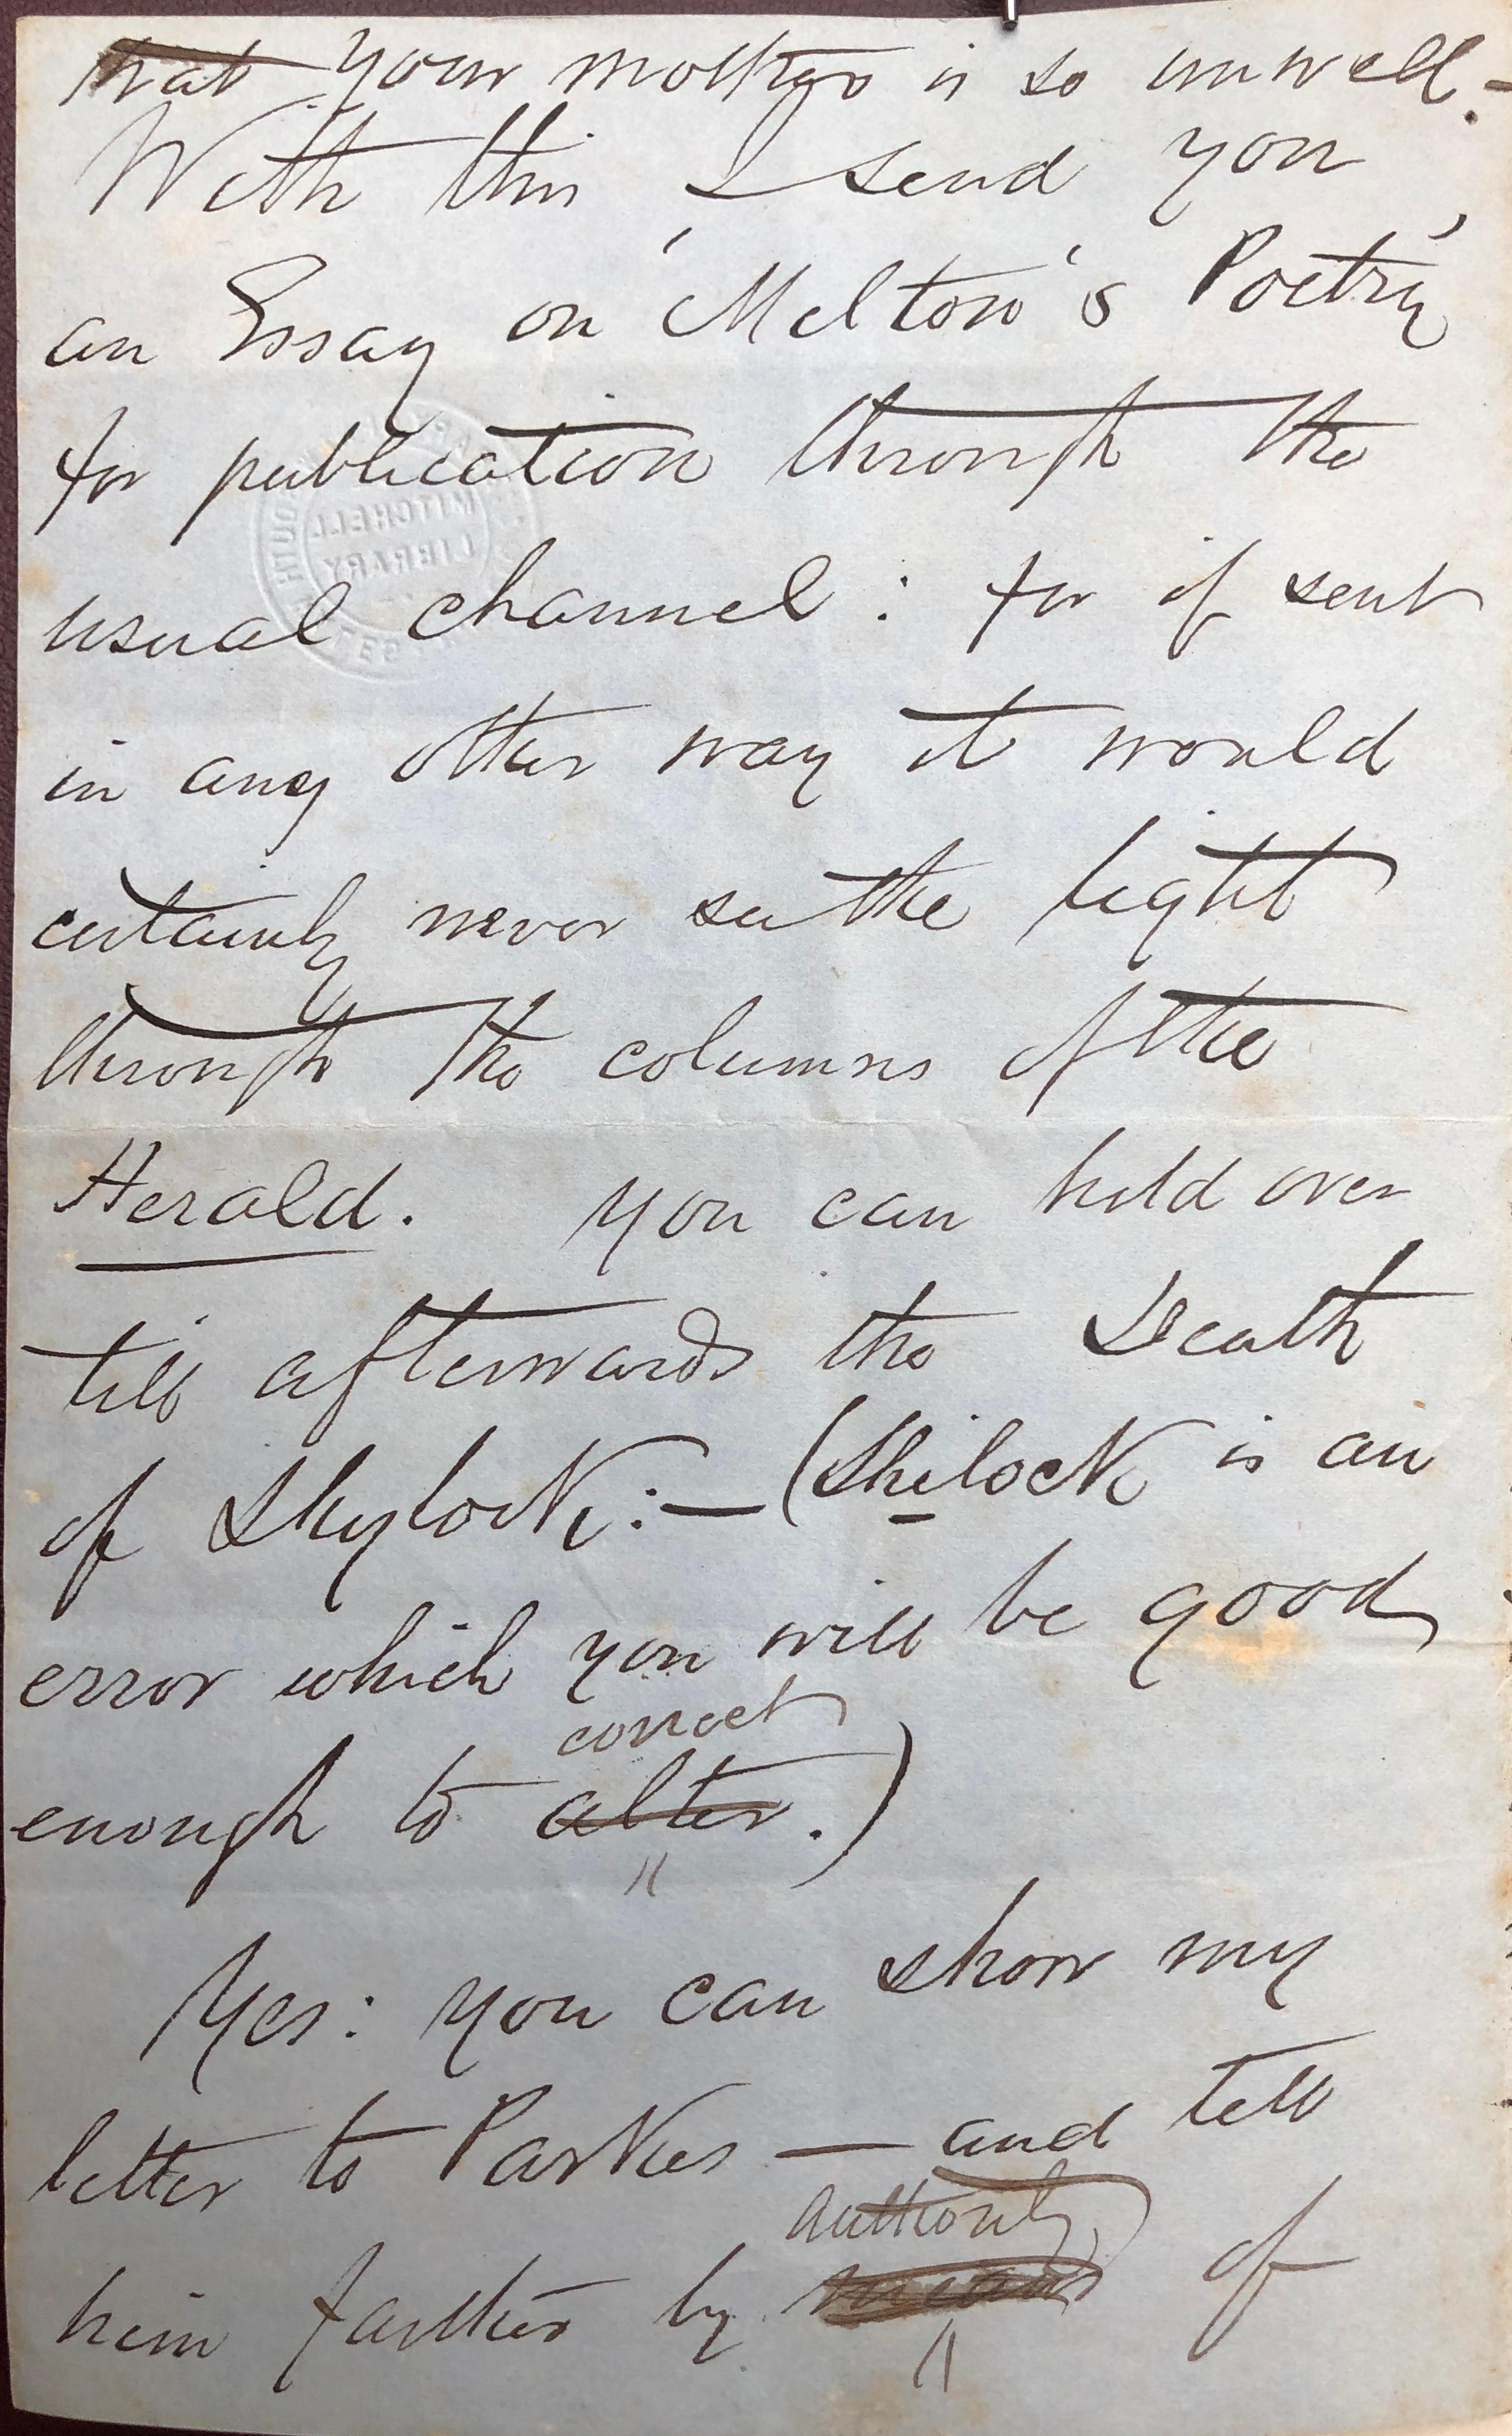 that your mother is so unwell.-
With this I send you
an Essay on 'Melton's Poetry'
for publication through the
usual channel: for if sent
in any other way it would
certainly never see the light
through the columns of the
Herald. You can hold over
till afterwards the Death
of Shylock:— (Shilock is an
error which you will be good
correct
enough to alter.)
Yes: you can show my
letter to Parkes — and tell
authority
him farther by means of
MITCHELL
LIBRARY